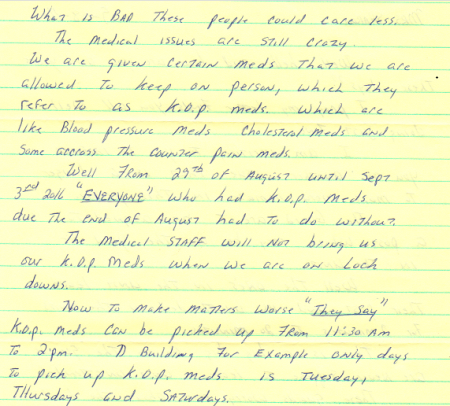 What is BAD These people could care less.
The medical issues are still crazy.
We are given certain meds that we are
allowed to keep on person, which they
refer to as K.O.P. meds. which are
like Blood pressure meds Cholesterol meds and
some accross the counter pain meds.
Well from 29th of August until Sept
3rd 2016 "EVERYONE" who had K.O.P. meds
due the end of August had to do without.
The medical STAFF will not bring us
our K.O.P. Meds when we are on Lock
downs.
Now to make matters worse "They Say"
K.O.P. meds can be picked up from 11:30 Am
to 2pm. D Building for example only days
to pick up K.O.P. meds is Tuesday,
Thursdays and Saturdays.